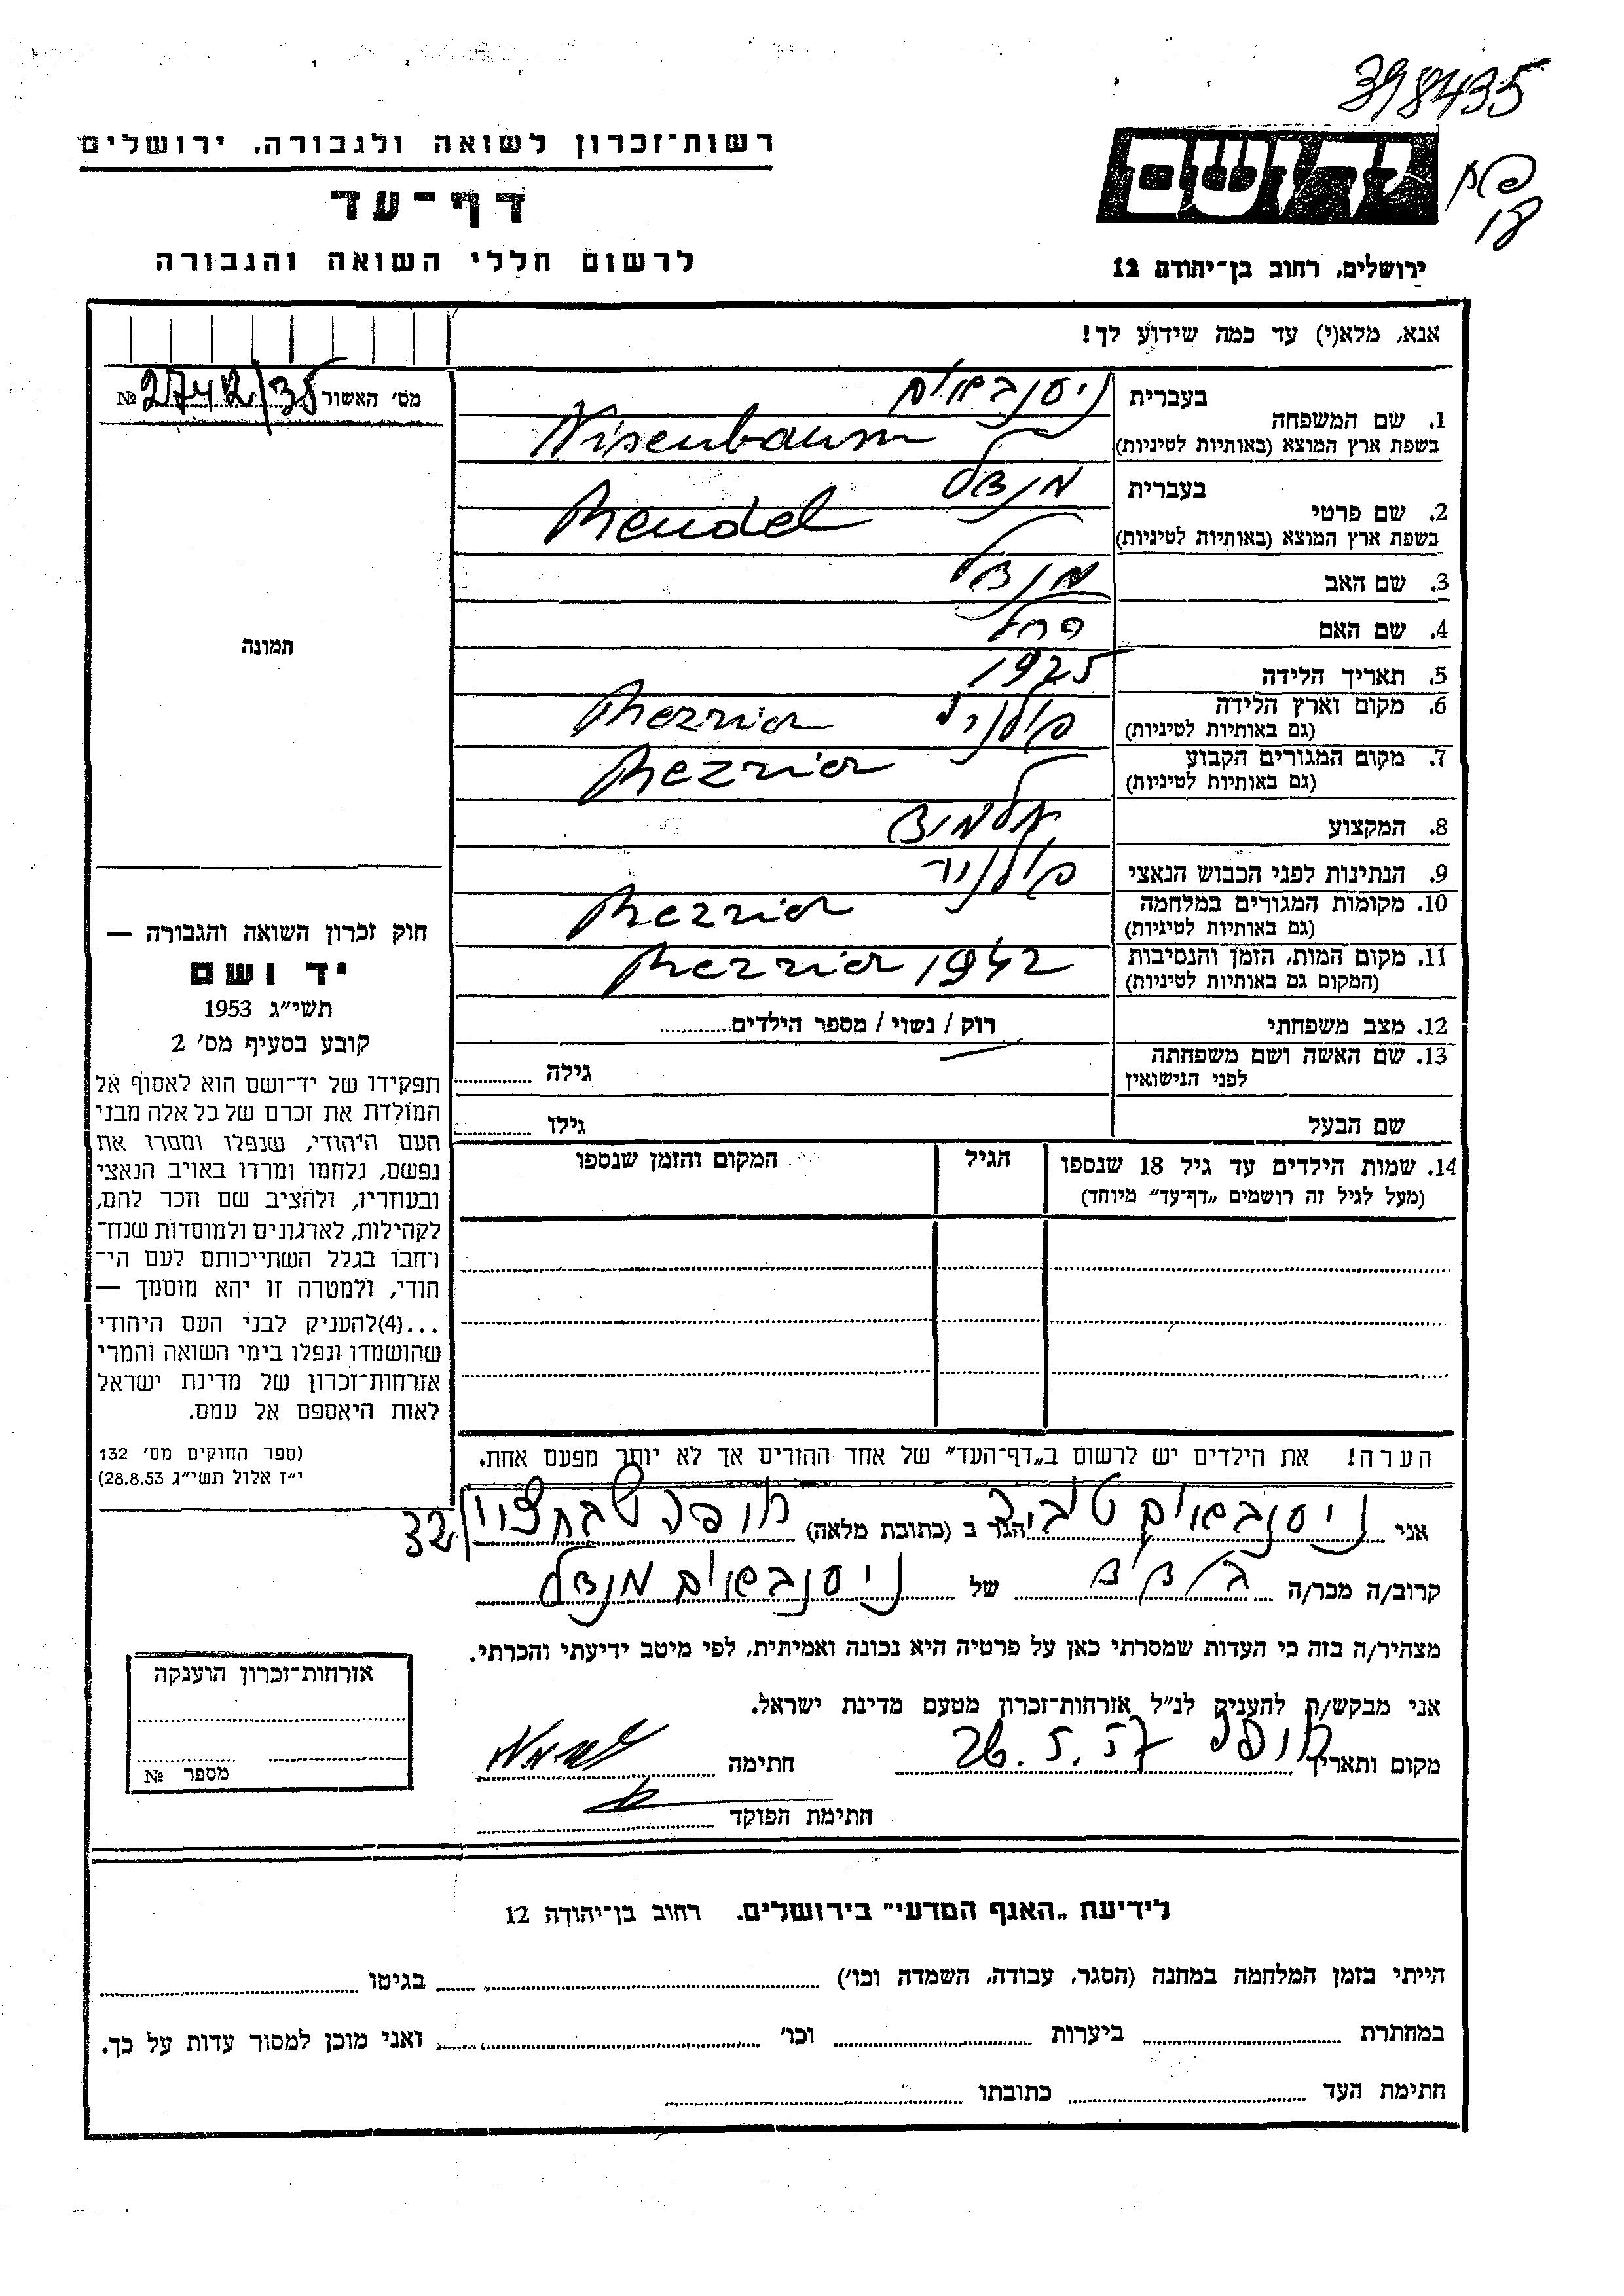 398435
יד ושם
18
רשות־זכרון לשואה ולגבורה. ירושלים
דף־עד
לרשום חללי השואה והגבורה
ירושלים, רחוב בן־יהודה 12
אנא, מלא(י) עד כמה שידוע לך!
מס׳ האשור 2742/35 №
1. שם המשפחה
בעברית ניסנבאום
בשפת ארץ המוצא (באותיות לטיניות) Nisenbaum
2. שם פרטי
בעברית מנדל
בשפת ארץ המוצא (באותיות לטיניות) Mendel
3. שם האב מנדל
4. שם האם רחל
5. תאריך הלידה 1925
6. מקום וארץ הלידה פולניה
(גם באותיות לטיניות)
7. מקום המגורים הקבוע
(גם באותיות לטיניות)
8. המקצוע תלמיד
9. הנתינות לפני הכבוש הנאצי
10. מקומות המגורים במלחמה
(גם באותיות לטיניות)
11. מקום המות, הזמן והנסיבות 1942
(המקום גם באותיות לטיניות)
12. מצב משפחתי רוק / נשוי / מספר הילדים
13. שם האשה ושם משפחתה
לפני הנישואין גילה
שם הבעל גילו
14. שמות הילדים עד גיל 18 שנספו הגיל המקום והזמן שנספו
(מעל לגיל זה רושמים „דף־עד״ מיוחד)
הערה! את הילדים יש לרשום ב„דף־העד״ של אחד ההורים אך לא יותר מפעם אחת.
תמונה
חוק זכרון השואה והגבורה —
יד ושם
תשי״ג 1953
קובע בסעיף מס׳ 2
תפקידו של יד־ושם הוא לאסוף אל
המולדת את זכרם של כל אלה מבני
העם היהודי, שנפלו ומסרו את
נפשם, נלחמו ומרדו באויב הנאצי
ובעוזריו, ולהציב שם וזכר להם,
לקהילות, לארגונים ולמוסדות שנח־
רחבו בגלל השתייכותם לעם הי־
הודי, ולמטרה זו יהא מוסמך —
...(4)להעניק לבני העם היהודי
שהושמדו ונפלו בימי השואה והמרי
אזרחות־זכרון של מדינת ישראל
לאות היאספם אל עמם.
(ספר החוקים מס׳ 132
י״ז אלול תשי״ג 28.8.53)
אני ניסנבאום הגר ב (כתובת מלאה) חיפה 32
קרוב/ה מכר/ה של ניסנבאום מנדל
מצהיר/ה בזה כי העדות שמסרתי כאן על פרטיה היא נכונה ואמיתית, לפי מיטב ידיעתי והכרתי.
אני מבקש/ת להעניק לנ״ל אזרחות־זכרון מטעם מדינת ישראל.
מקום ותאריך חיפה 26.5.57 חתימה
חתימת הפוקד
אזרחות־זכרון הוענקה
מספר №
לידיעת „האגף המדעי״ בירושלים. רחוב בן־יהודה 12
הייתי בזמן המלחמה במחנה (הסגר, עבודה, השמדה וכו׳) בגיטו
במחתרת ביערות וכו׳ ואני מוכן למסור עדות על כך.
חתימת העד כתובתו